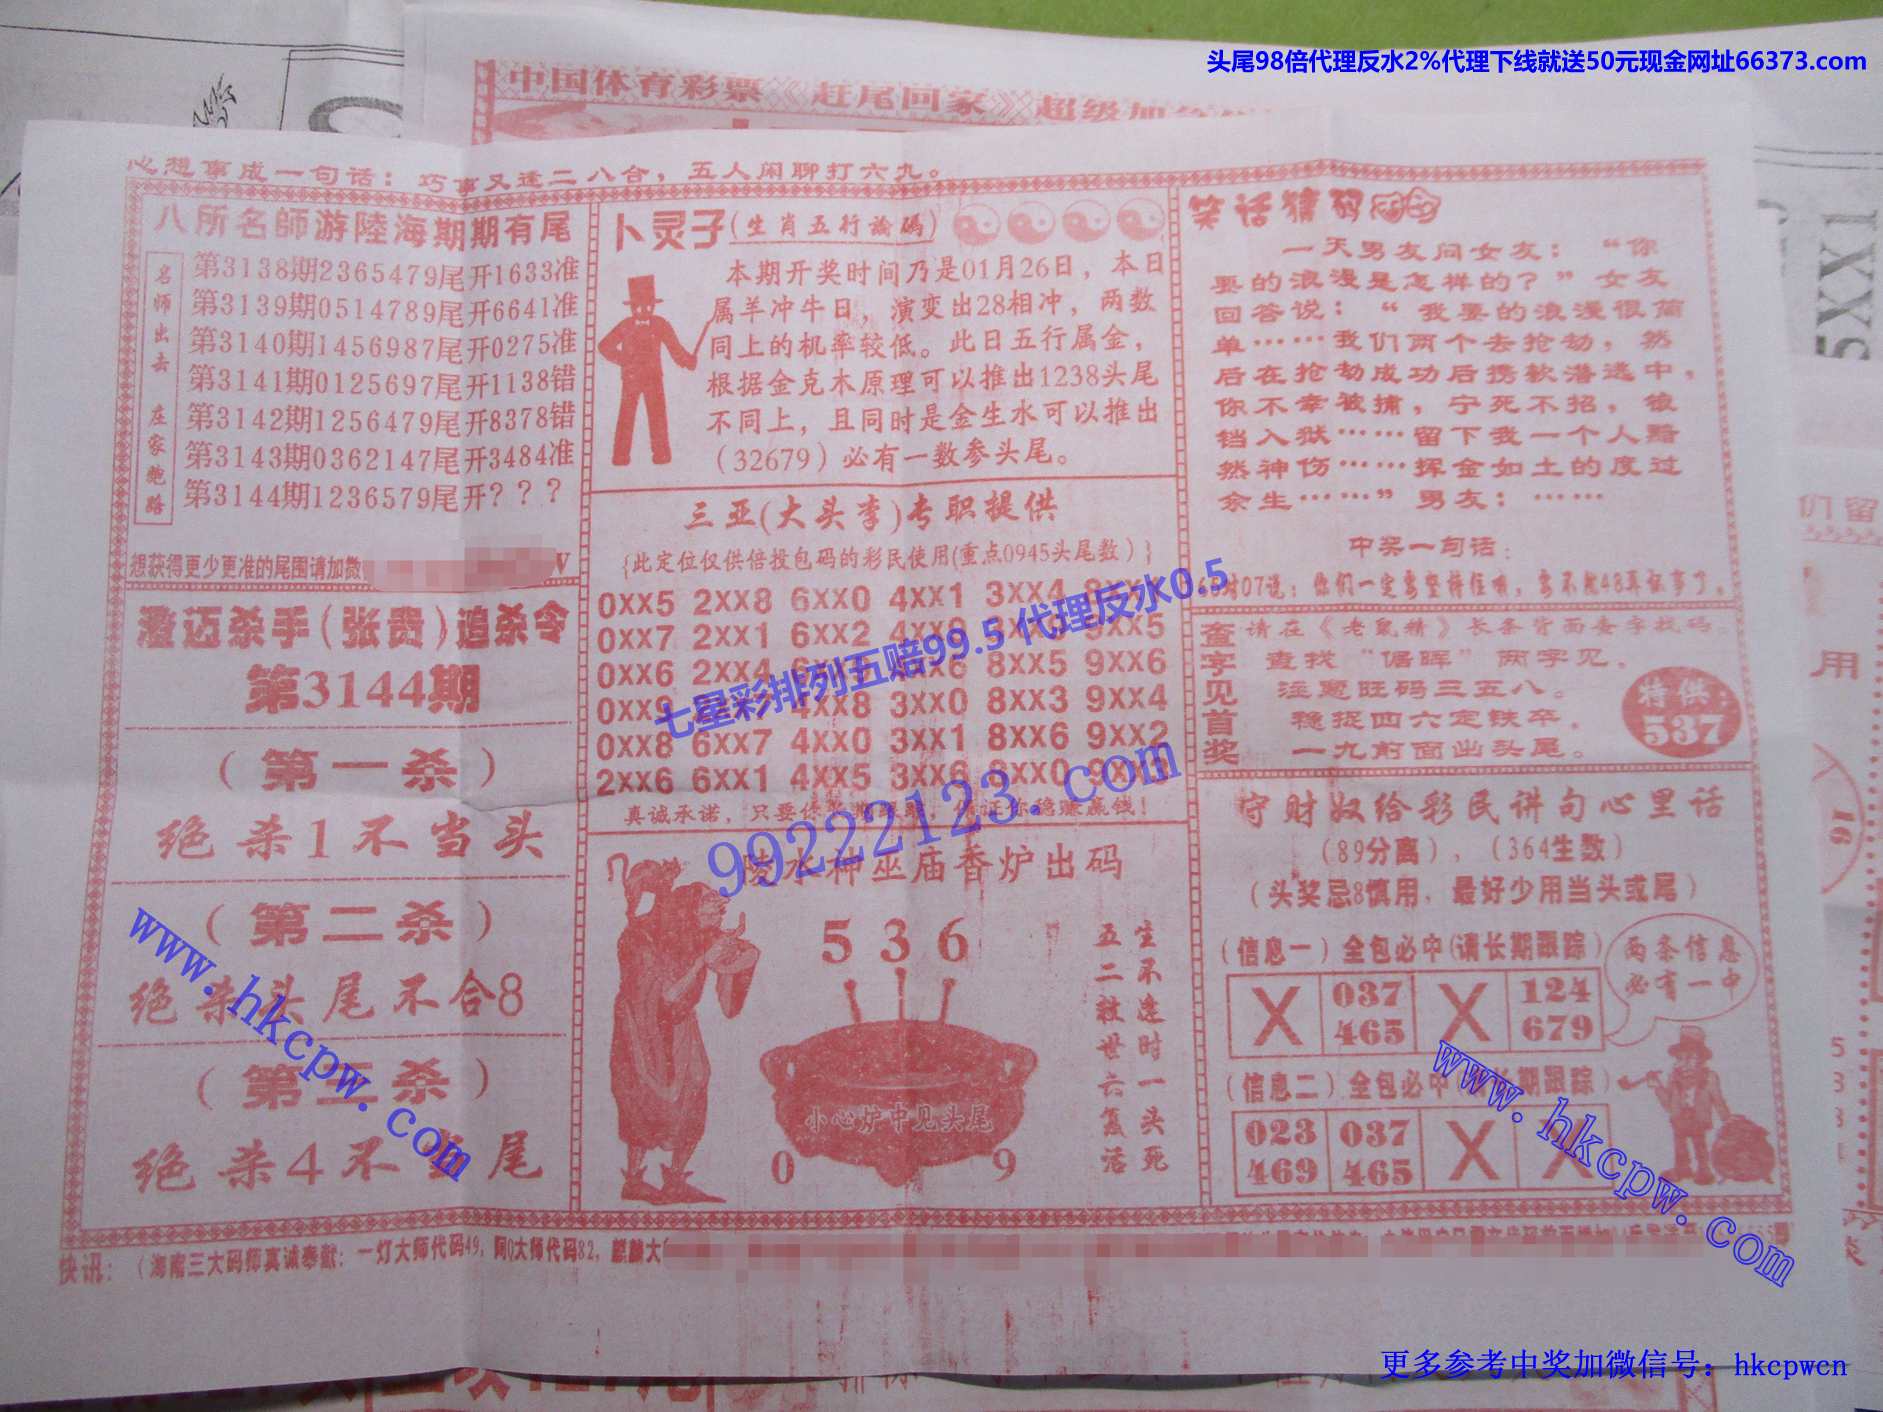 头尾98倍代理反水2%代理下线就送50元现金网址66373.com
中国体育彩票《赶尾回家》超级加
心想事成一句话：巧事又逢二八合，五人闲聊打六九。
八所名師游陸海期期有尾
名师出去 庄家跑路
第3138期2365479尾开1633准
第3139期0514789尾开6641准
第3140期1456987尾开0275准
第3141期0125697尾开1138错
第3142期1256479尾开8378错
第3143期0362147尾开3484准
第3144期1236579尾开？？？
想获得更少更准的尾围请加微
澄迈杀手(张贵)追杀令
第3144期
（第一杀）
绝杀1不当头
（第二杀）
绝杀头尾不合8
（第三杀）
绝杀4不当尾
卜灵子(生肖五行論碼)
本期开奖时间乃是01月26日，本日
属羊冲牛日，演变出28相冲，两数
同上的机率较低。此日五行属金，
根据金克木原理可以推出1238头尾
不同上，且同时是金生水可以推出
（32679）必有一数参头尾。
三亚(大头李)专职提供
{此定位仅供倍投包码的彩民使用(重点0945头尾数）}
0XX5 2XX8 6XX0 4XX1 3XX4
0XX7 2XX1 6XX2 9XX5
0XX6 2XX4 8XX5 9XX6
0XX9 4XX8 3XX0 8XX3 9XX4
0XX8 6XX7 4XX0 3XX1 8XX6 9XX2
2XX6 6XX1 4XX5 3XX6 8XX0
真诚承诺，只要你 证你稳赚赢钱！
陵水神巫庙香炉出码
5 3 6
生不逢时一头死
五二救世六复活
小心炉中见头尾
0 9
笑话猜码
一天男友问女友：“你
要的浪漫是怎样的？”女友
回答说：“我要的浪漫很简
单……我们两个去抢劫，然
后在抢劫成功后携款潜逃中，
你不幸被捕，宁死不招，锒
铛入狱……留下我一个人黯
然神伤……挥金如土的度过
余生……”男友：……
中奖一句话：
对07说：你们一定要坚持住哦，要不然48再说事了。
查字见首奖
请在《老鼠精》长条背面查字找码。
查找“倡晖”两字见，
注意旺码三五八。
稳捉四六定铁卒，
一九前面出头尾。
特供：
537
守财奴给彩民讲句心里话
（89分离），（364生数）
（头奖忌8慎用，最好少用当头或尾）
（信息一）全包必中(请长期跟踪)
X 037 X 124
465 679
两条信息
必有一中
（信息二）全包必中 长期跟踪）
023 037 X X
469 465
快讯：（海南三大码师真诚奉献：一灯大师代码49，阿Q大师代码82，麒麟大
七星彩排列五赔99.5 代理反水0.5
99222123.com
www.hkcpw.com
www.hkcpw.com
5XX1
们留
用
16
更多参考中奖加微信号：hkcpwcn